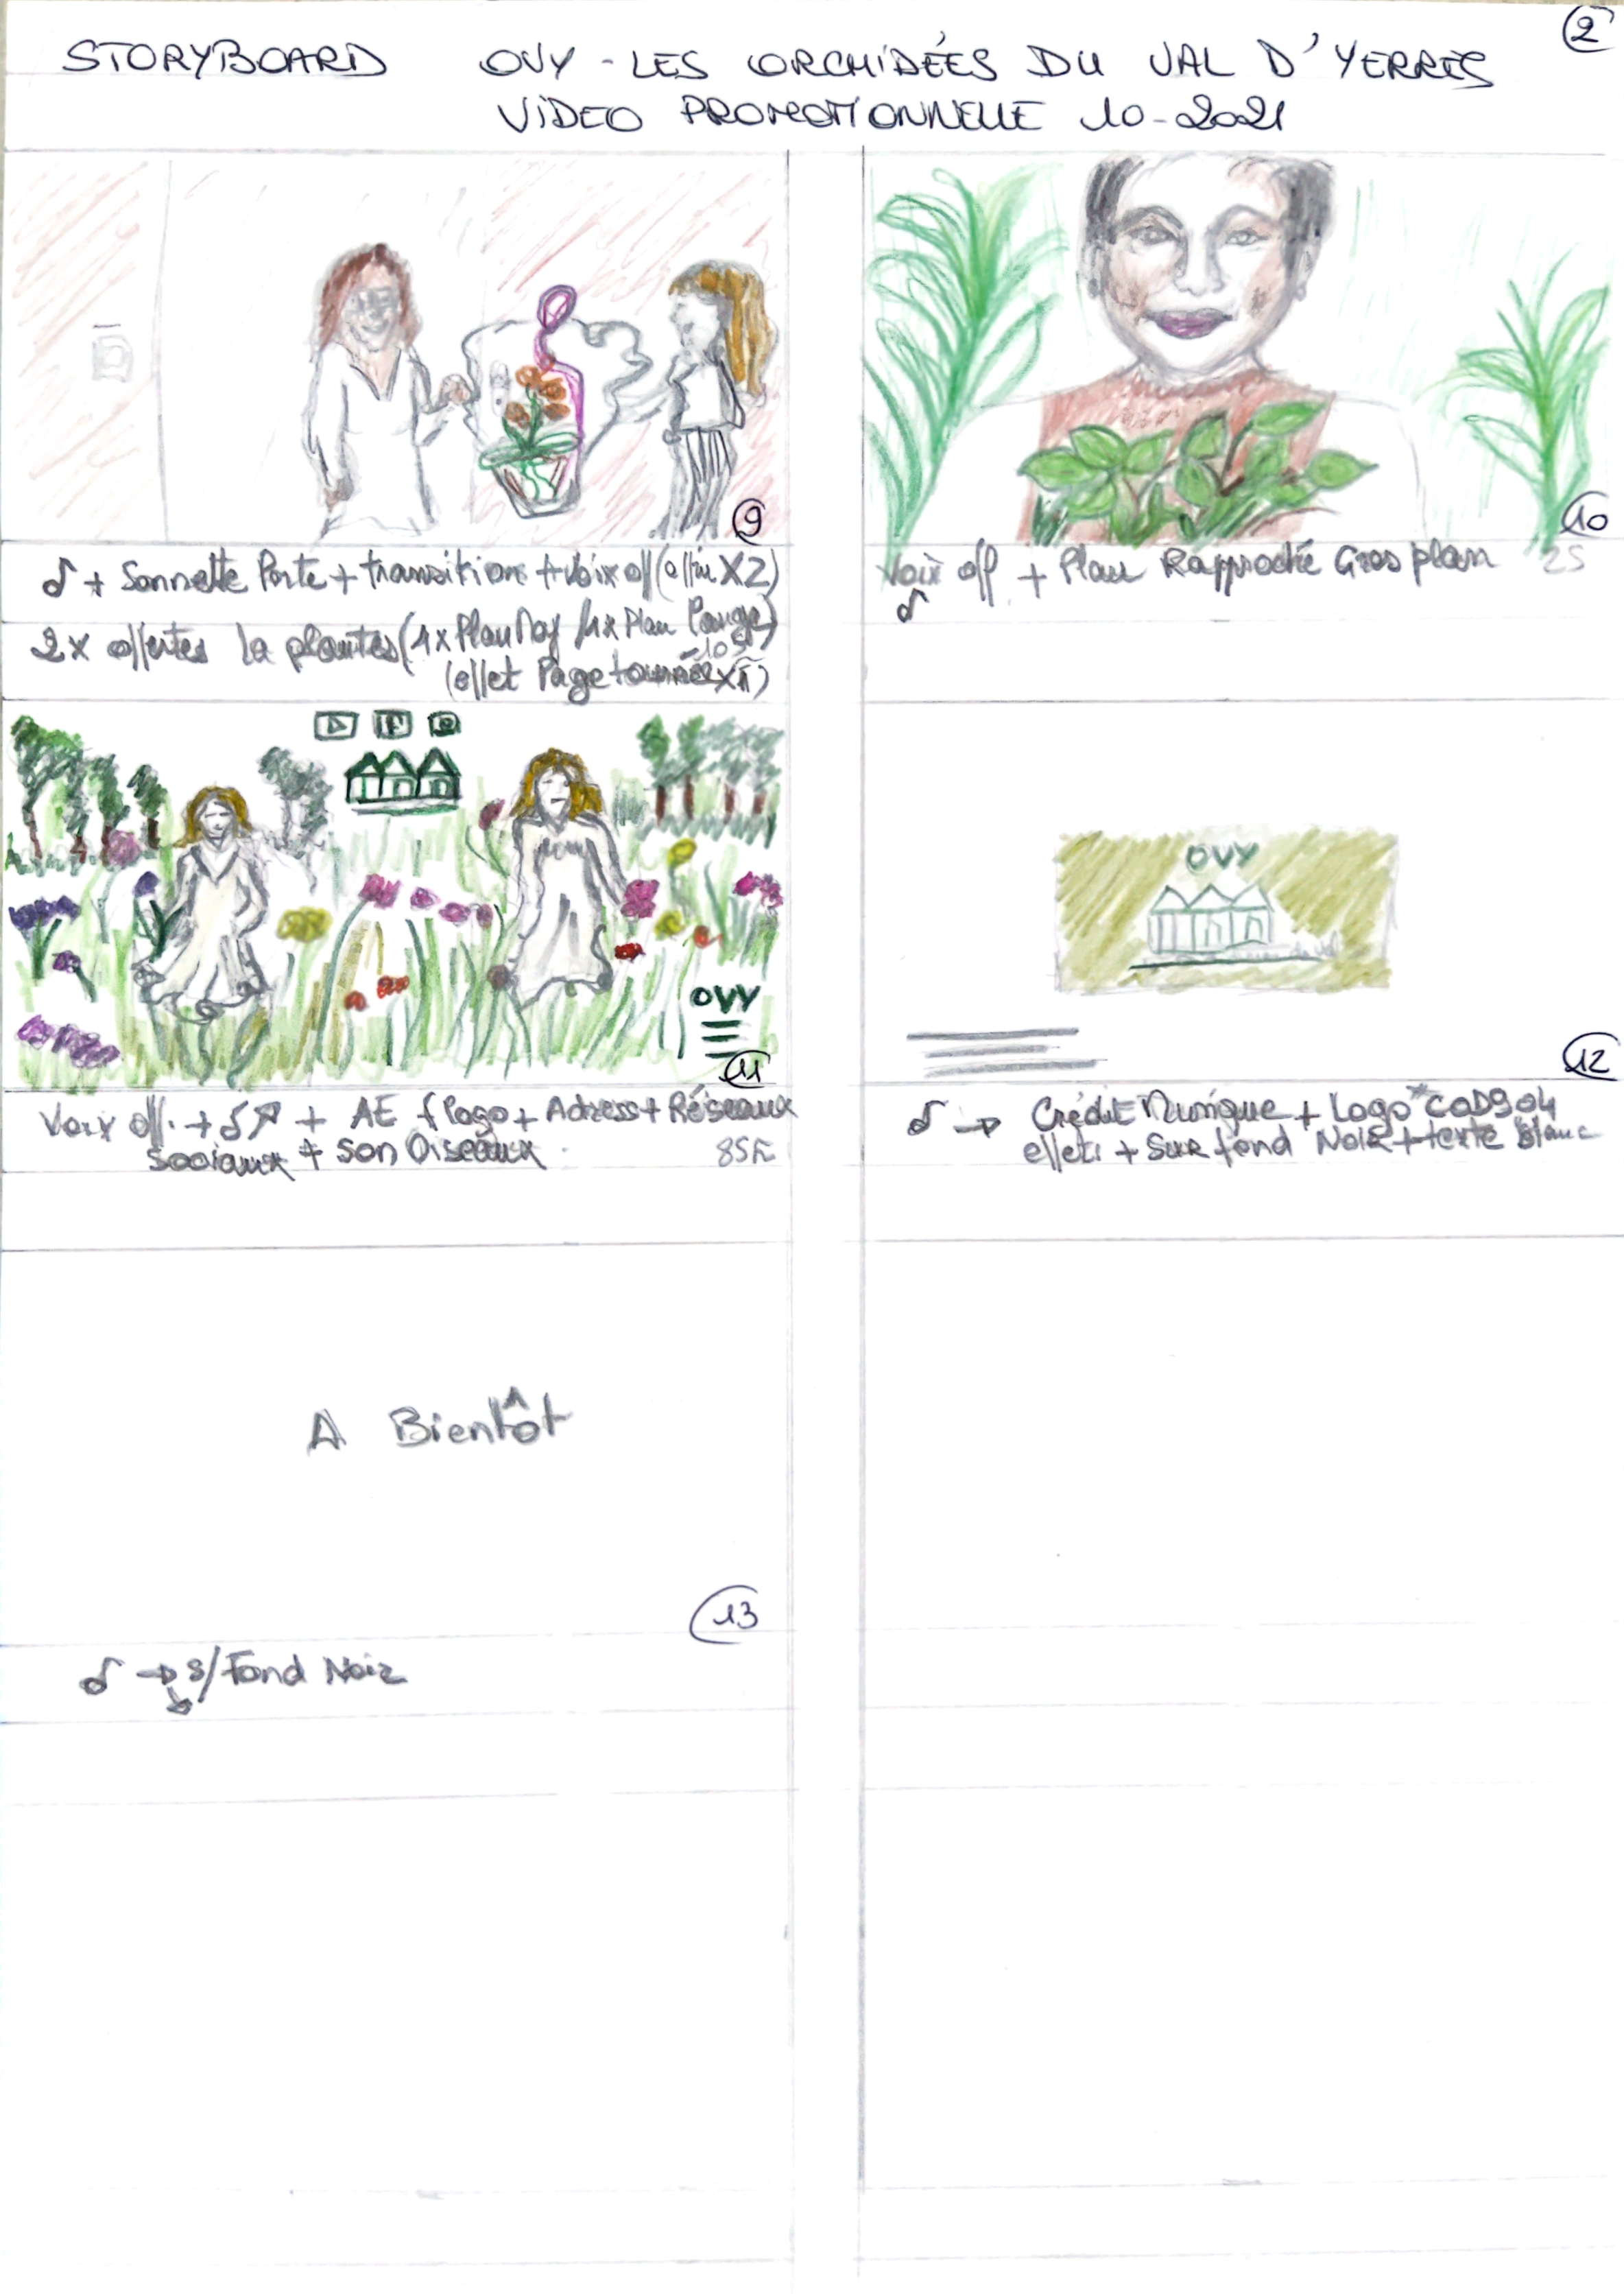 2
STORYBOARD OVY - LES ORCHIDÉES DU VAL D'YERRES
VIDEO PROMOTIONNELLE 10-2021
9
♪ + Sonnette Porte + transition + Voix off ( X2)
2x offertes la plantes (1x Plan Moy 1x Plan Large)
10s
(effet Page tournée X1)
10
Voix off + Plan Rapproché Gros plan 2S
♪
OVY
11
Voix off. + ♪ ↗ + AE (Logo + Adress + Réseaux
Sociaux + Son Oiseaux
OVY
12
♪ → Crédit Musique + Logo * COD904
effets + Sur fond Noir + texte Blanc
A Bientôt
13
♪ → s/Fond Noir